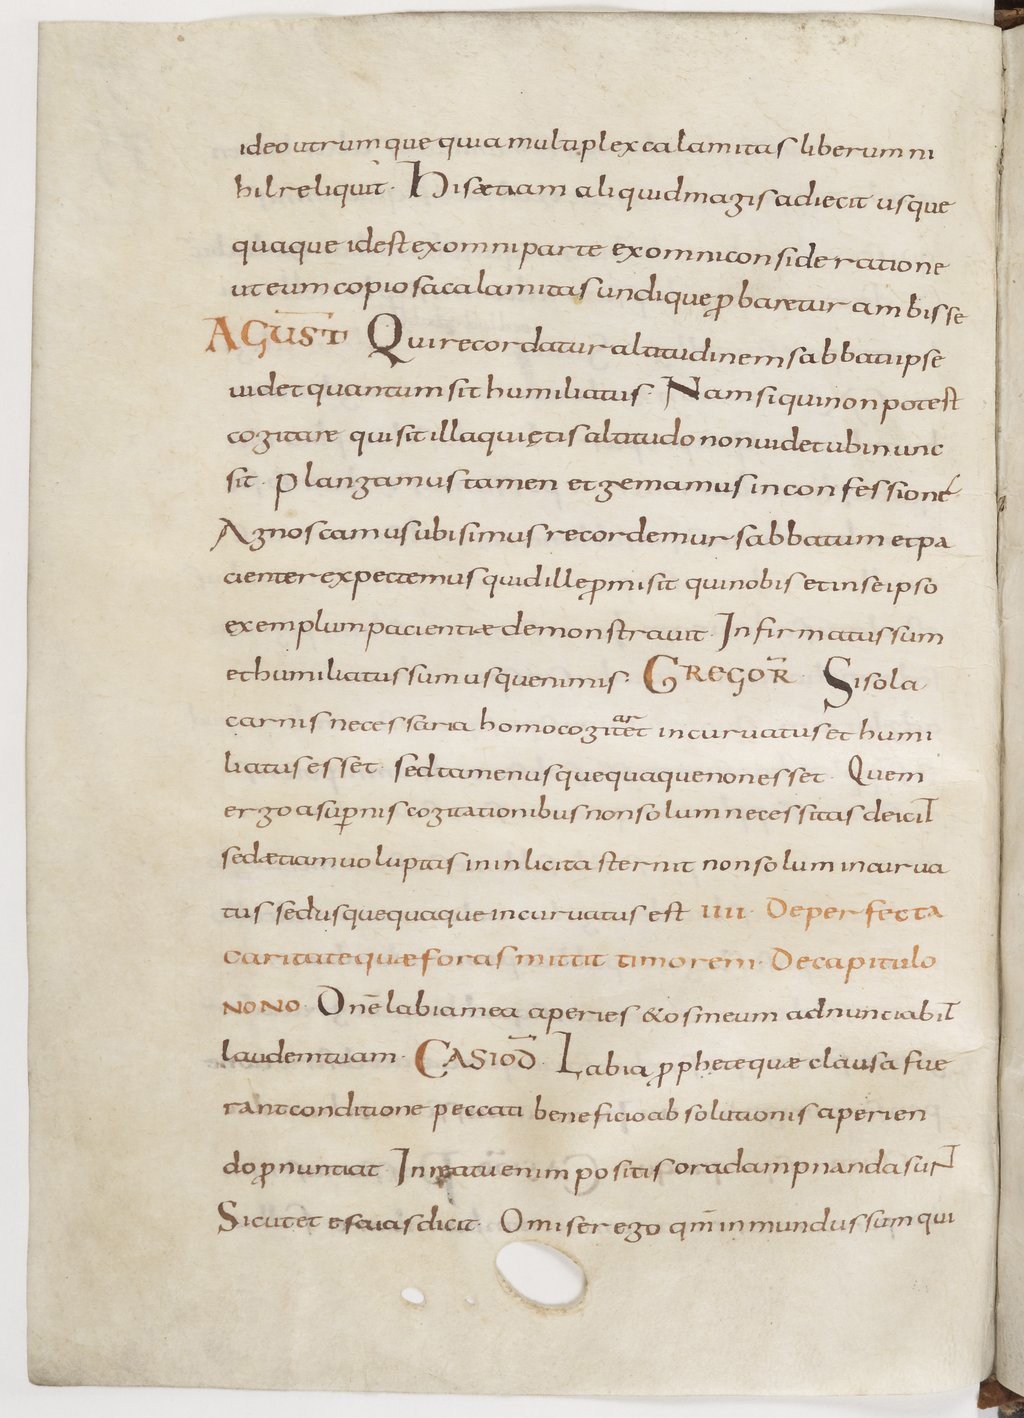 ideo utrumque quia multiplex calamitas liberum ni
hil reliquit. His ætiam aliquid magis adiecit usque
quaque id est ex omni parte ex omni consideratione
ut eum copiosa calamitas undique ꝓbaretur ambisse
AGUST̅ Qui recordatur altitudinem sabbati ipse
uidet quantum sit humiliatus. Nam si qui non potest
cogitare qui sit illa quiętis altitudo non uidet ubi nunc
sit. Plangamus tamen et gemamus in confessione
Agnoscamus ubi simus recordemur sabbatum et pa
cienter expectemus quid ille ꝓmisit qui nobis et in se ipso
exemplum pacientiæ demonstrauit. Infirmatus sum
et humiliatus sum usque nimis. GREGOR̅ Si sola
carnis necessaria homo cogitaret incuruatus et humi
liatus esset. sed tamen usquequaque non esset. Quem
ergo a sup̅nis cogitationibus non solum necessitas deicit
sed ætiam uoluptas in inlicita sternit non solum incurua
tus sed usquequaque incuruatus est IIII. De perfecta
caritate quæ foras mittit timorem. De capitulo
NONO. Dn̅e labia mea aperies & os meum adnunciabit
laudem tuam. CASIOD̅. Labia ꝓphete quæ clausa fue
rant conditione peccati beneficio absolutionis aperien
do ꝓnuntiat. In reatu enim positis ora dampnanda sunt
Sicut et esaias dicit. O miser ego qm̅ inmundus sum qui